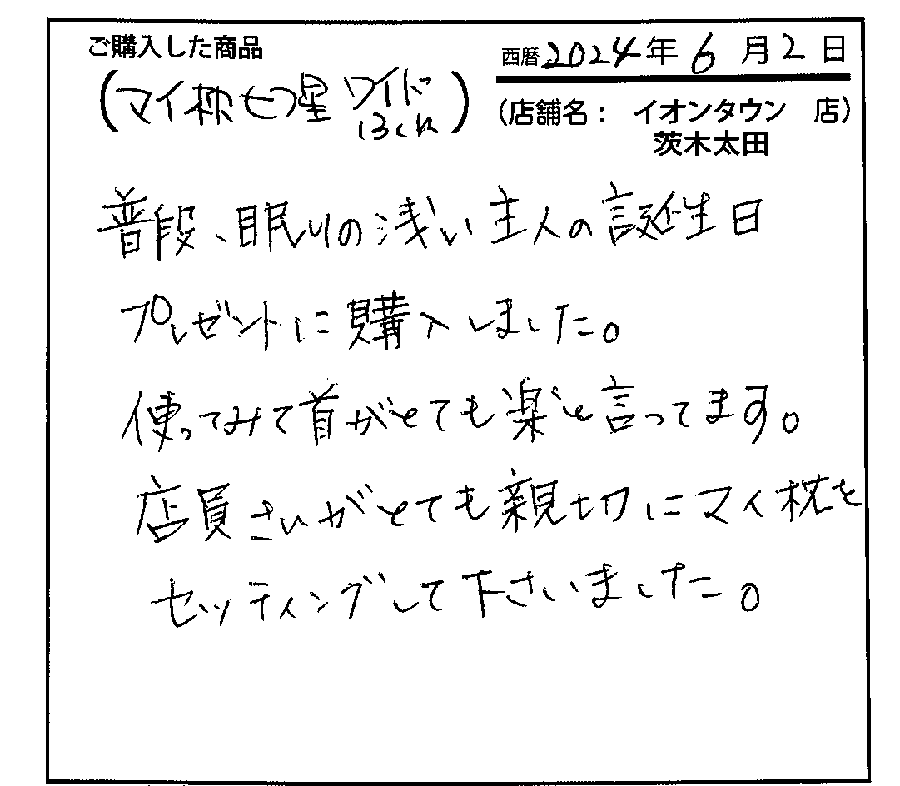 ご購入した商品
西暦2024年6月2日
(マイ枕七つ星 ワイド
)
(店舗名: イオンタウン 店)
茨木太田
普段、眠りの浅い主人の誕生日
プレゼントに購入しました。
使ってみて首がとても楽と言ってます。
店員さんがとても親切にマイ枕を
セッティングして下さいました。